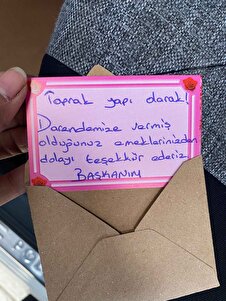 Toprak yapı olarak!
Darendemize vermiş
olduğunuz emeklerinizden
dolayı teşekkür ederiz
BAŞKANIM